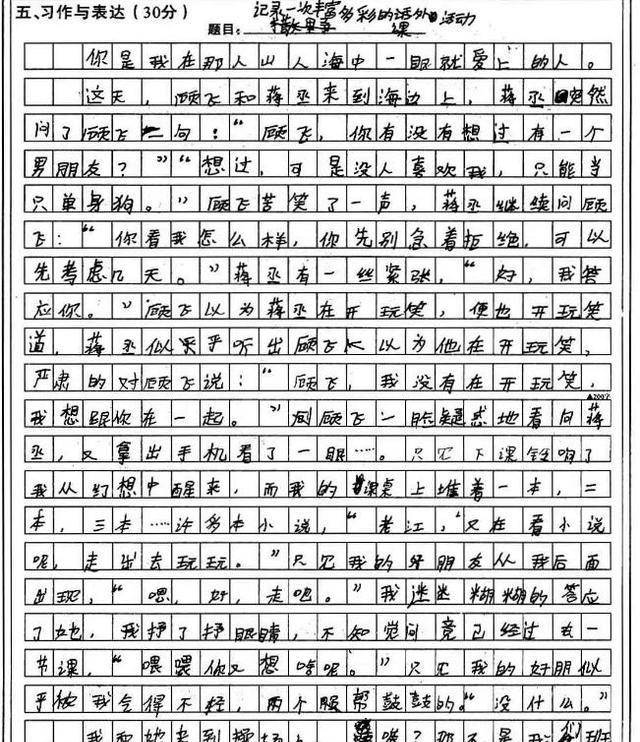 五、习作与表达（30分）
记录一次丰富多彩的课外活动
题目：
你是我在那人山人海中一眼就爱上的人。
这天，顾飞和蒋丞来到海边上，蒋丞突然
问了顾飞一句：“顾飞，你有没有想过有一个
男朋友？”“想过，可是没人喜欢我，只能当
只单身狗。”顾飞苦笑了一声，蒋丞继续问顾
飞：“你看我怎么样，你先别急着拒绝，可以
先考虑几天。”蒋丞有一丝紧张，“好，我答
应你。”顾飞以为蒋丞在开玩笑，便也开玩笑
道，蒋丞似乎听出顾飞以为他在开玩笑，
严肃的对顾飞说：“顾飞，我没有在开玩笑，
▲200字
我想跟你在一起。”顾飞一脸疑惑地看向蒋
丞，又拿出手机看了一眼……。只见下课铃响了
我从幻想中醒来，而我的课桌上堆着一本，二
本，三本……许多本小说，“老江，又在看小说
呢，走出去玩玩。”只见我的好朋友从我后面
出现，“嗯，好，走吧。”我迷迷糊糊的答应
了她，我抒了抒眼睛，不知觉间竟已经过去一
节课，“喂喂你又想啥呢。”只见我的好朋似
乎被我气得不轻，两个腮帮鼓鼓的“没什么。”
我和她来到操场上